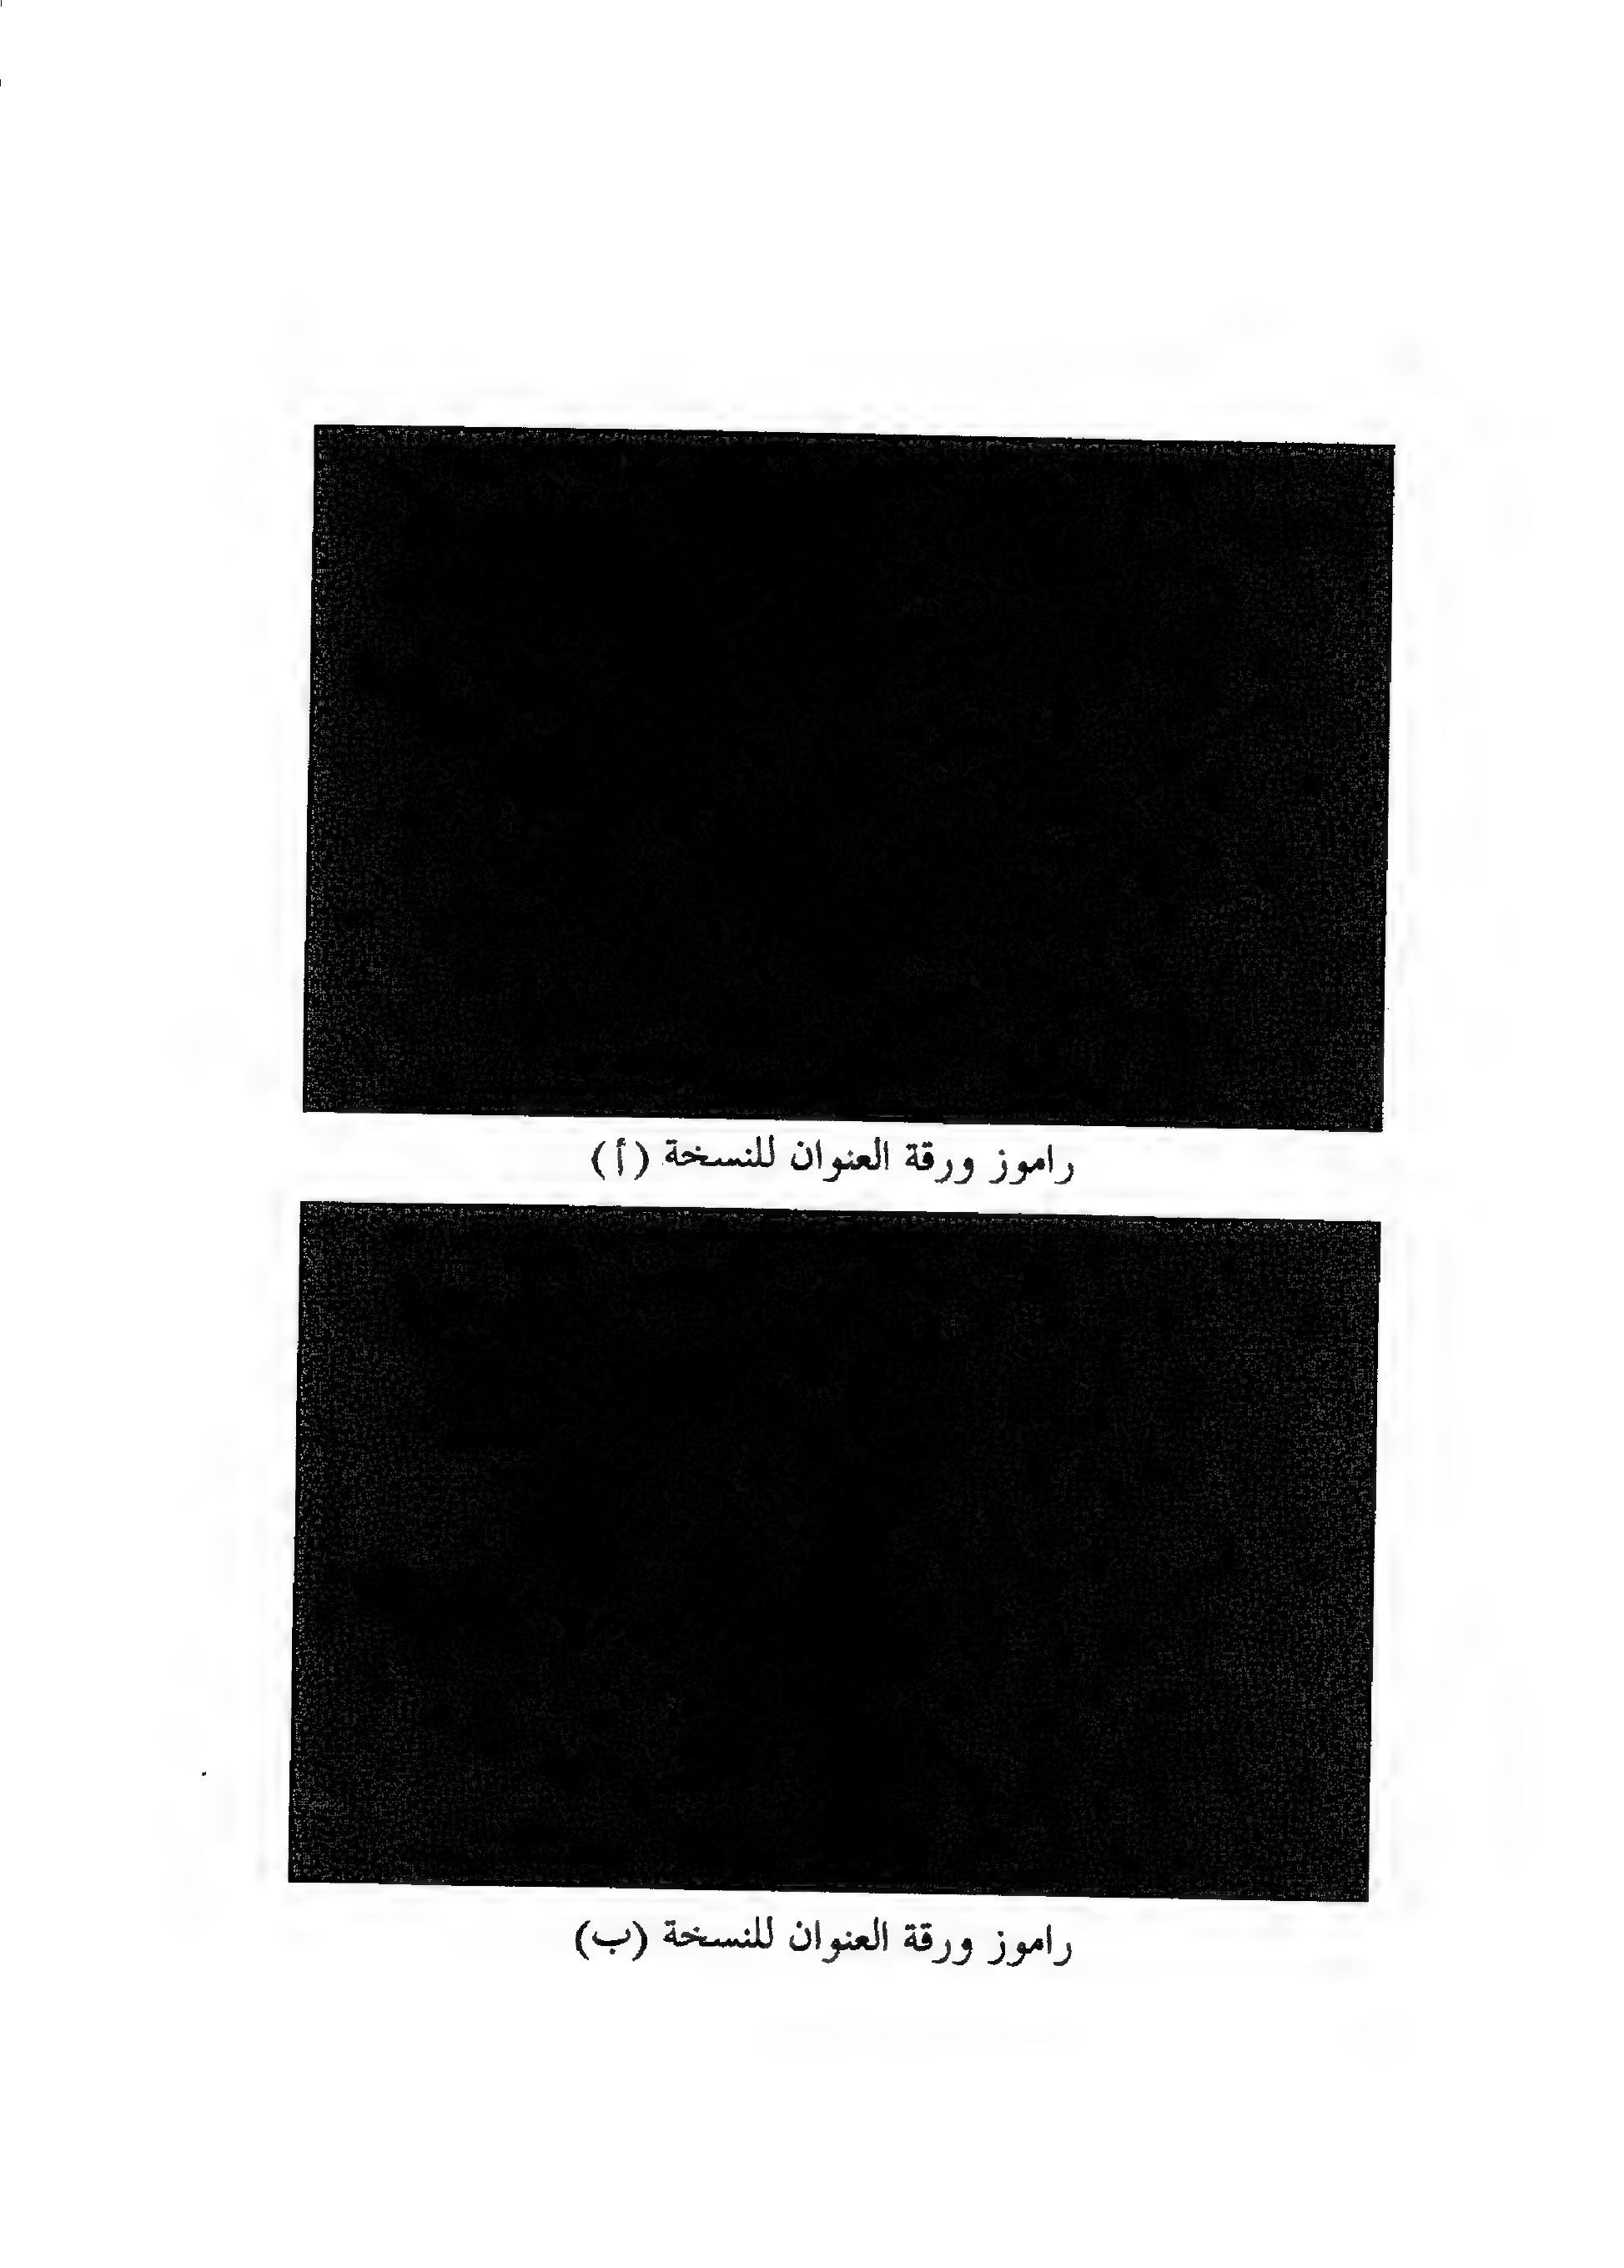 راموز ورقة العنوان للنسخة (أ)
راموز ورقة العنوان للنسخة (ب)